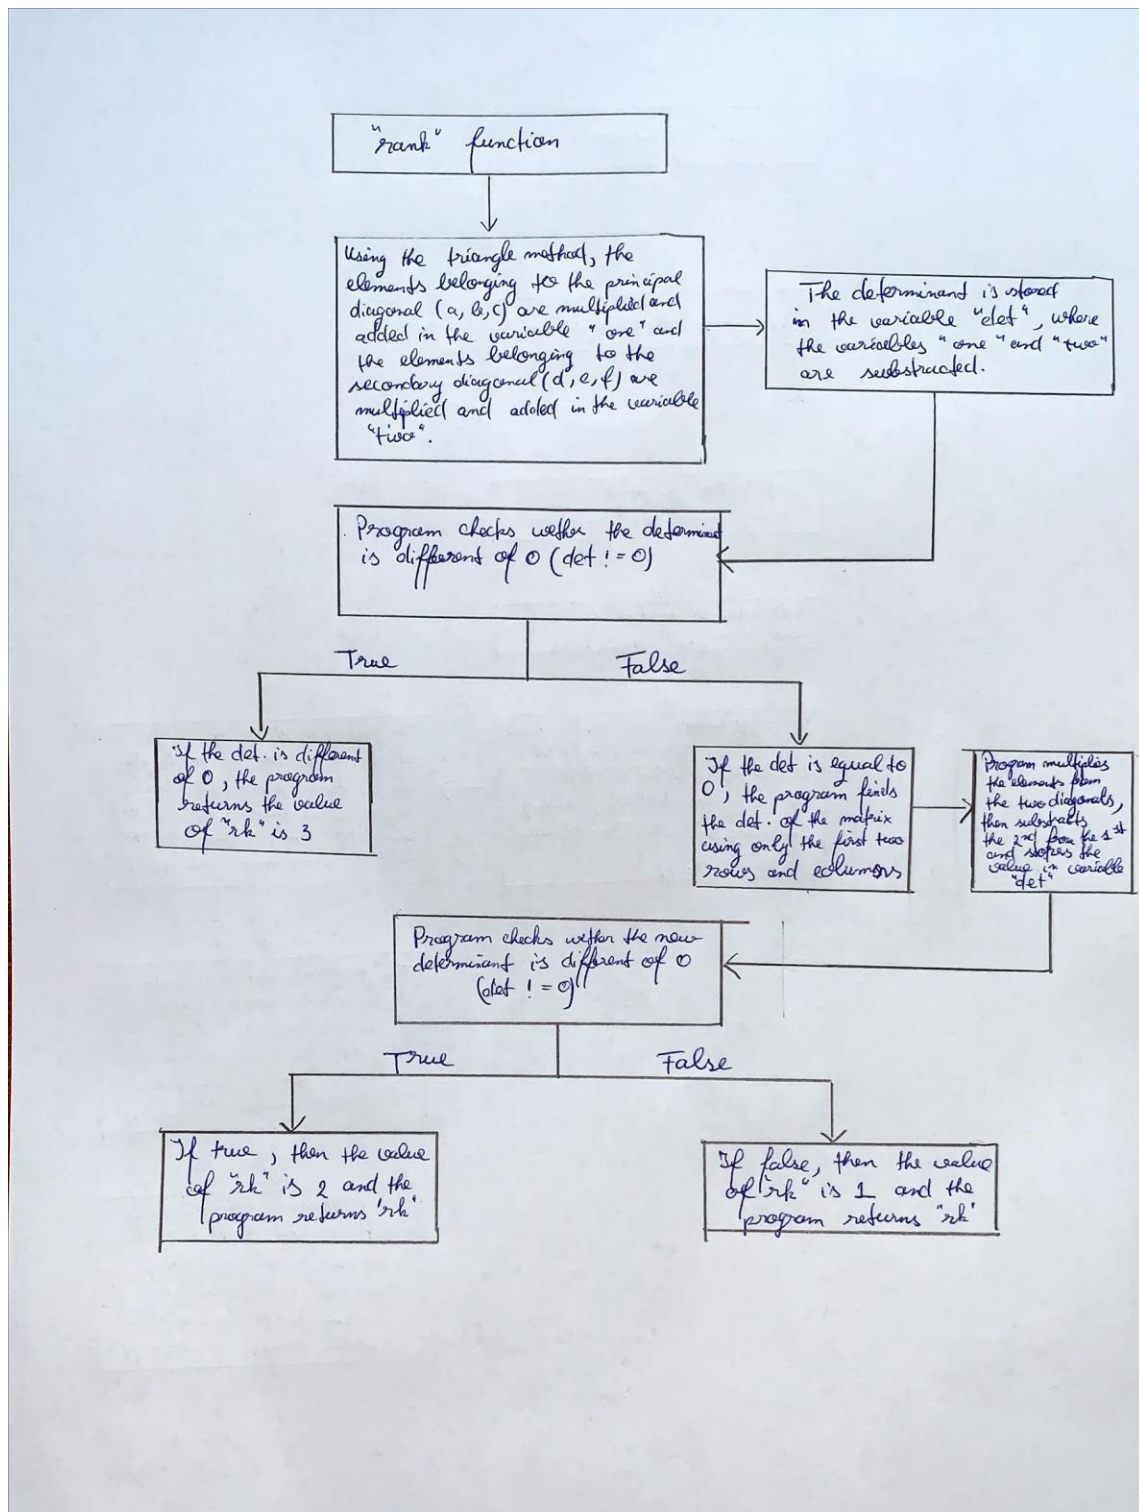 "rank" function
Using the triangle method, the
elements belonging to the principal
diagonal (a, b, c) are multiplied and
added in the variable "one" and
the elements belonging to the
secondary diagonal (d, e, f) are
multiplied and added in the variable
"two".
The determinant is stored
in the variable "det", where
the variables "one" and "two"
are substracted.
Program checks wether the determinant
is different of 0 (det != 0)
True
False
If the det. is different
of 0, the program
returns the value
of "rk" is 3
If the det is equal to
0, the program finds
the det. of the matrix
using only the first two
rows and columns
Program multiplies
the elements from
the two diagonals,
then substracts
the 2nd from the 1st
and stores the
value in variable
"det"
Program checks wether the new
determinant is different of 0
(det != 0)
True
False
If true, then the value
of "rk" is 2 and the
program returns "rk"
If false, then the value
of "rk" is 1 and the
program returns "rk"